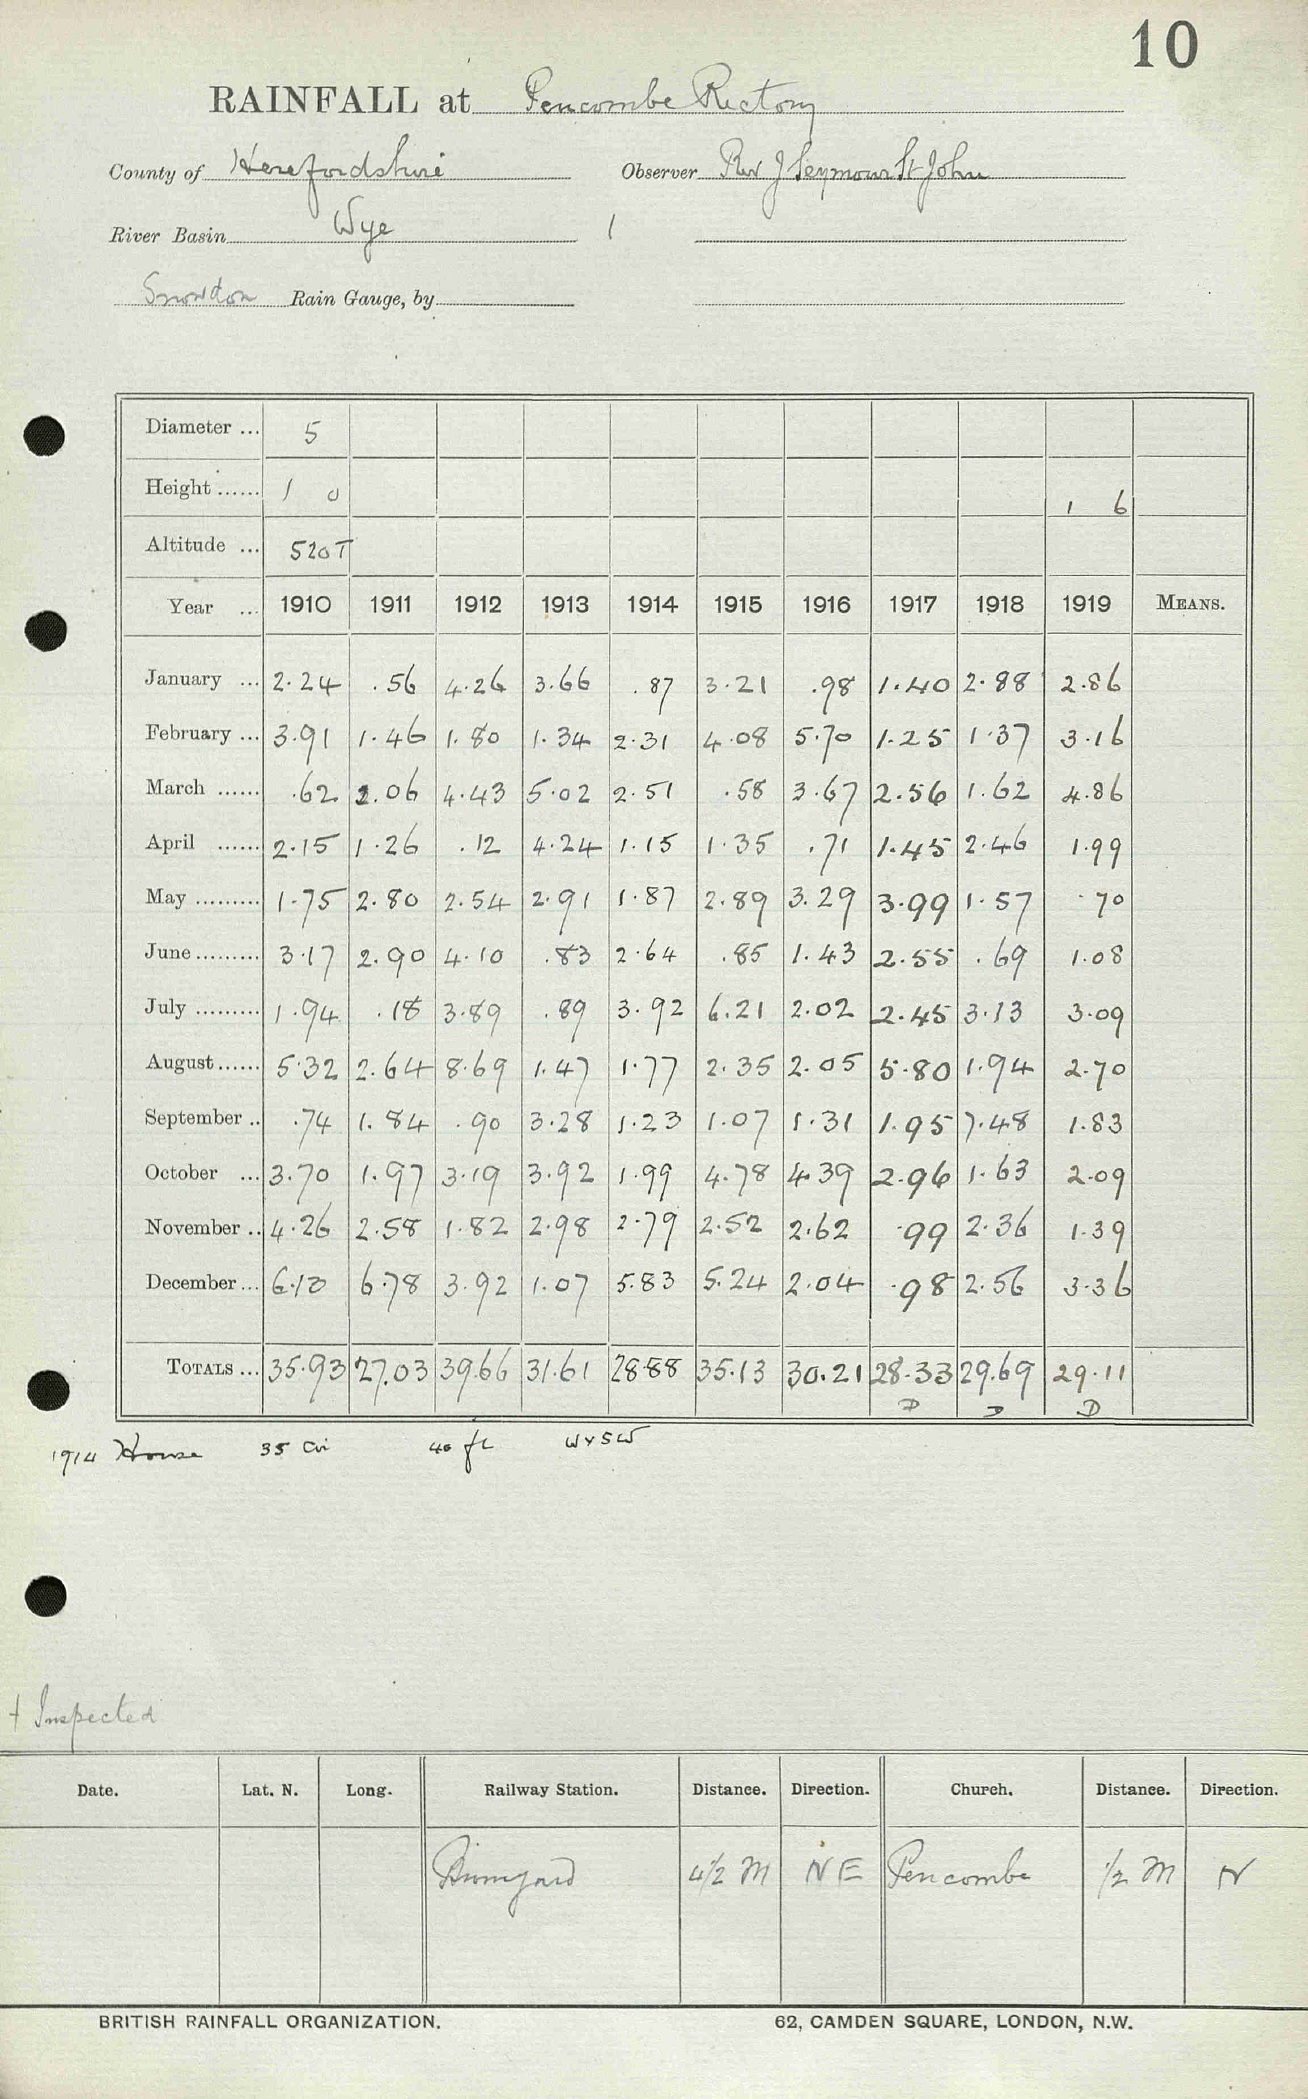 10
RAINFALL at Pencombe Rectory
County of Herefordshire Observer Rev J Seymour St John
River Basin Wye 1
Snowdon Rain Gauge, by
Diameter ... 5
Height ...... 1 0 1 6
Altitude ... 520 T
Year ... 1910 1911 1912 1913 1914 1915 1916 1917 1918 1919 MEANS.
January ... 2.24 .56 4.26 3.66 .87 3.21 .98 1.40 2.88 2.86
February ... 3.91 1.46 1.80 1.34 2.31 4.08 5.70 1.25 1.37 3.16
March ...... .62 2.06 4.43 5.02 2.51 .58 3.67 2.56 1.62 4.86
April ...... 2.15 1.26 .12 4.24 1.15 1.35 .71 1.45 2.46 1.99
May ......... 1.75 2.80 2.54 2.91 1.87 2.89 3.29 3.99 1.57 .70
June ......... 3.17 2.90 4.10 .83 2.64 .85 1.43 2.55 .69 1.08
July ......... 1.94 .18 3.89 .89 3.92 6.21 2.02 2.45 3.13 3.09
August ...... 5.32 2.64 8.69 1.47 1.77 2.35 2.05 5.80 1.94 2.70
September .. .74 1.84 .90 3.28 1.23 1.07 1.31 1.95 7.48 1.83
October ... 3.70 1.97 3.19 3.92 1.99 4.78 4.39 2.96 1.63 2.09
November .. 4.26 2.58 1.82 2.98 2.79 2.52 2.62 .99 2.36 1.39
December ... 6.13 6.78 3.92 1.07 5.83 5.24 2.04 .98 2.56 3.36
TOTALS ... 35.93 27.03 39.66 31.61 28.88 35.13 30.21 28.33 29.69 29.11
D D D
1914 House 35 40 ft W x SW
+ Inspected
Date. Lat. N. Long. Railway Station. Distance. Direction. Church. Distance. Direction.
Bromyard 4½ M NE Pencombe ½ M N
BRITISH RAINFALL ORGANIZATION. 62, CAMDEN SQUARE, LONDON, N.W.